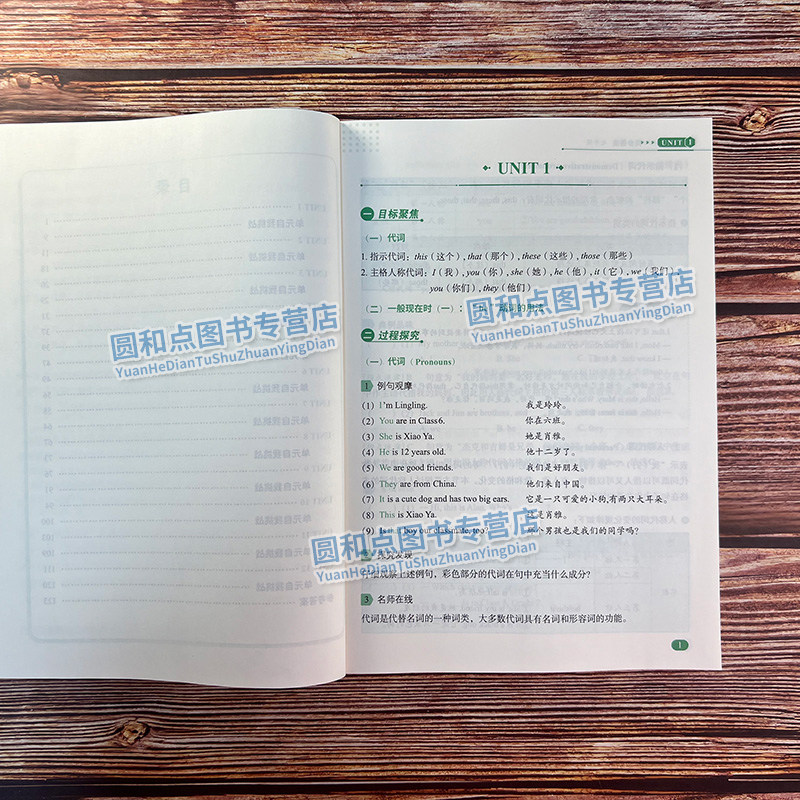 UNIT 1
UNIT 1
一 目标聚焦
（一）代词
1. 指示代词：this（这个）, that（那个）, these（这些）, those（那些）
2. 主格人称代词：I（我）, you（你）, she（她）, he（他）, it（它）, we（我们）
you（你们）, they（他们）
（二）一般现在时（一）：
词的用法
圆和点图书专营店
YuanHeDianTuShuZhuanYingDian
圆和点图书专营店
YuanHeDianTuShuZhuanYingDian
二 过程探究
（一）代词（Pronouns）
1 例句观摩
(1) I'm Lingling. 我是玲玲。
(2) You are in Class6. 你在六班。
(3) She is Xiao Ya. 她是肖雅。
(4) He is 12 years old. 他十二岁了。
(5) We are good friends. 我们是好朋友。
(6) They are from China. 他们来自中国。
(7) It is a cute dog and has two big ears. 它是一只可爱的小狗,有两只大耳朵。
(8) This is Xiao Ya. 这是肖雅。
(9) Is that boy our classmate, too? 那个男孩也是我们的同学吗?
圆和点图书专营店
YuanHeDianTuShuZhuanYingDian
2 探究发现
仔细观察上述例句，彩色部分的代词在句中充当什么成分?
3 名师在线
代词是代替名词的一种词类，大多数代词具有名词和形容词的功能。
1